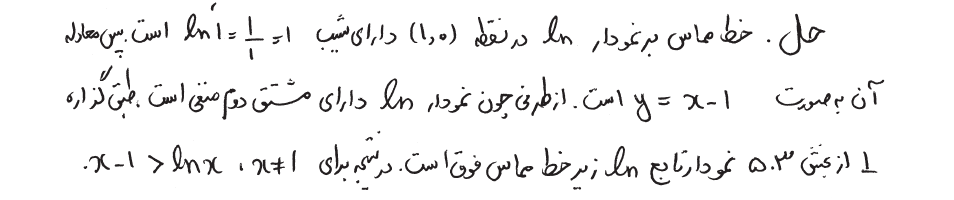 حل. خط مماس بر نمودار ln در نقطه (1,0) دارای شیب ln′1 = 1/1 = 1 است. پس معادله
آن به صورت y = x-1 است. از طرفی چون نمودار ln دارای مشتق دوم منفی است. طبق گزاره
1 از بخش ۵.۳ نمودار تابع ln زیر خط مماس فوق است. در نتیجه برای x≠1، x-1 > lnx.